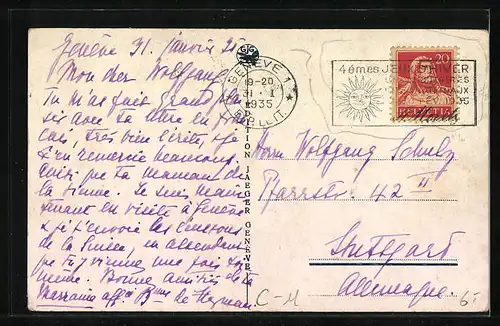 Genève 31. janvier 35
Mon cher Wolfgang,
Tu m'as fait grand plai
sir avec ta lettre en fran
çais, très bien écrite, et je
t'en remercie beaucoup,
ainsi que ta maman de
la sienne. Je suis main
tenant en visite à Genève
et je t'envoie les environs
de la Suisse, en attendant
que tu y viennes une fois toi
même. Bonne amitiés de ta
Marraine aff.
GENÈVE 1
19-20
31. I
1935
EXP. LETT.
4èmes JEUX D'HIVER
1935
20
HELVETIA
EDITION JAEGER GENEVE
Herrn Wolfgang Schulz
Pfarrstr. 42 II
Stuttgart
Allemagne.
C-M
6.-